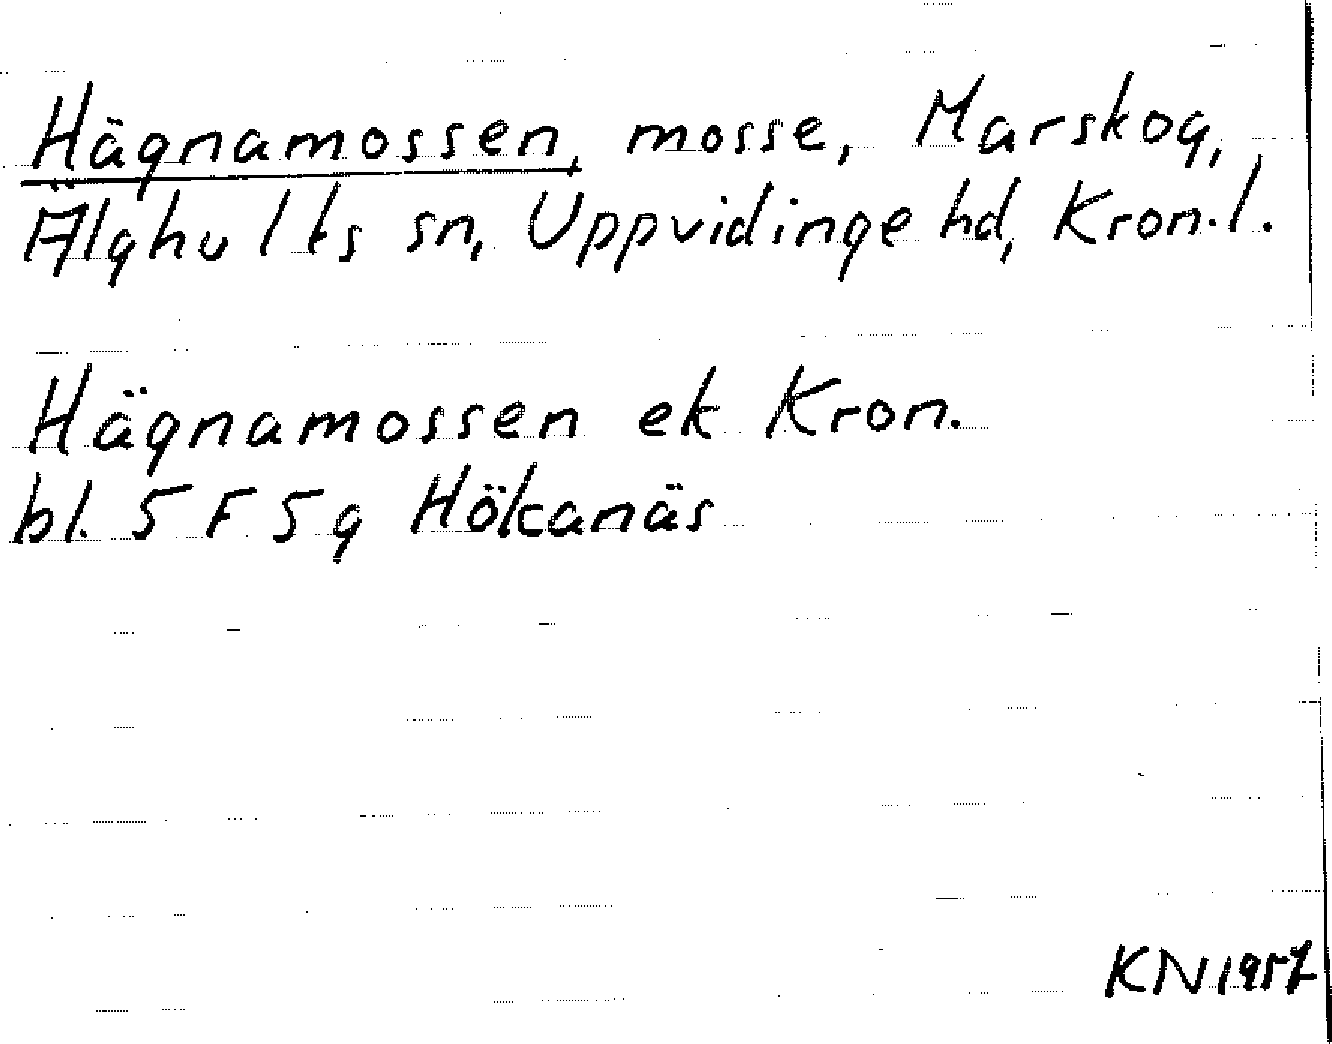 Hägnamossen, mosse, Marskog,
Älghults sn, Uppvidinge hd, Kron.l.
Hägnamossen ek Kron.
bl. 5 F 5 g Hökanäs
KN 1957